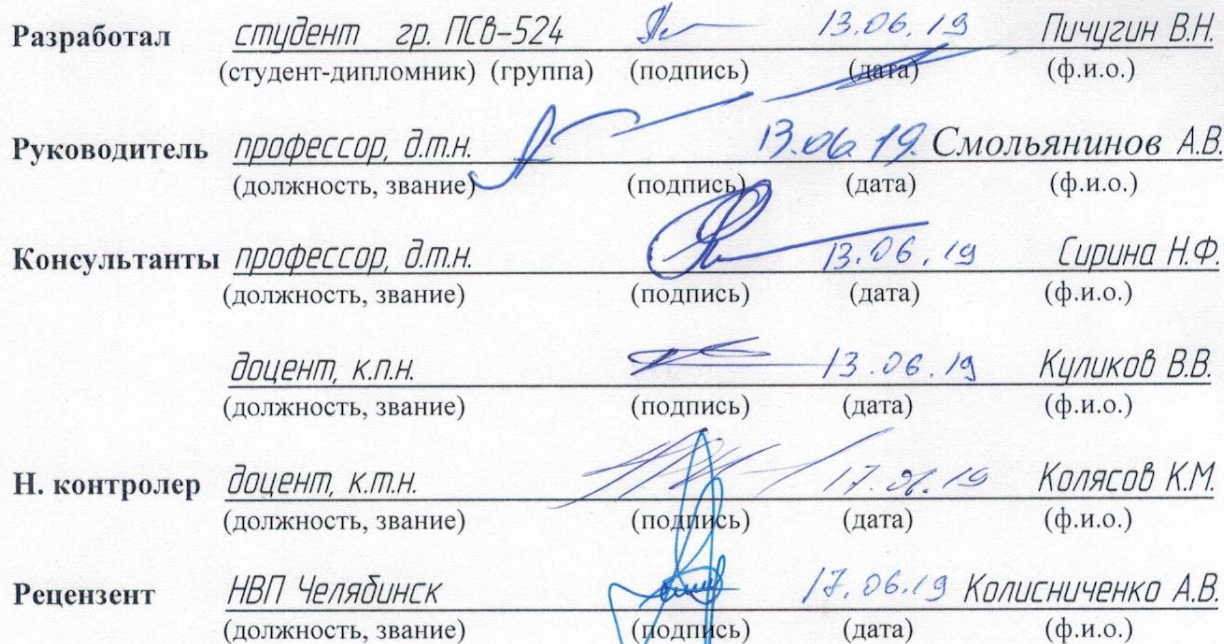 Разработал студент гр. ПСв-524 13.06.19 Пичугин В.Н.
(студент-дипломник) (группа) (подпись) (дата) (ф.и.о.)
Руководитель профессор, д.т.н. 13.06.19. Смольянинов А.В.
(должность, звание) (подпись) (дата) (ф.и.о.)
Консультанты профессор, д.т.н. 13.06.19 Сирина Н.Ф.
(должность, звание) (подпись) (дата) (ф.и.о.)
доцент, к.п.н. 13.06.19 Куликов В.В.
(должность, звание) (подпись) (дата) (ф.и.о.)
Н. контролер доцент, к.т.н. 17.06.19 Колясов К.М.
(должность, звание) (подпись) (дата) (ф.и.о.)
Рецензент НВП Челябинск 17.06.19 Колисниченко А.В.
(должность, звание) (подпись) (дата) (ф.и.о.)